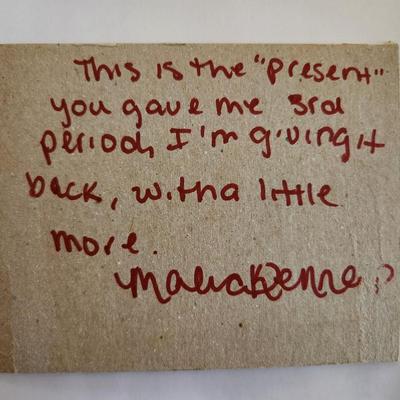 This is the "present"
you gave me 3rd
period, I'm giving it
back, with a little
more.